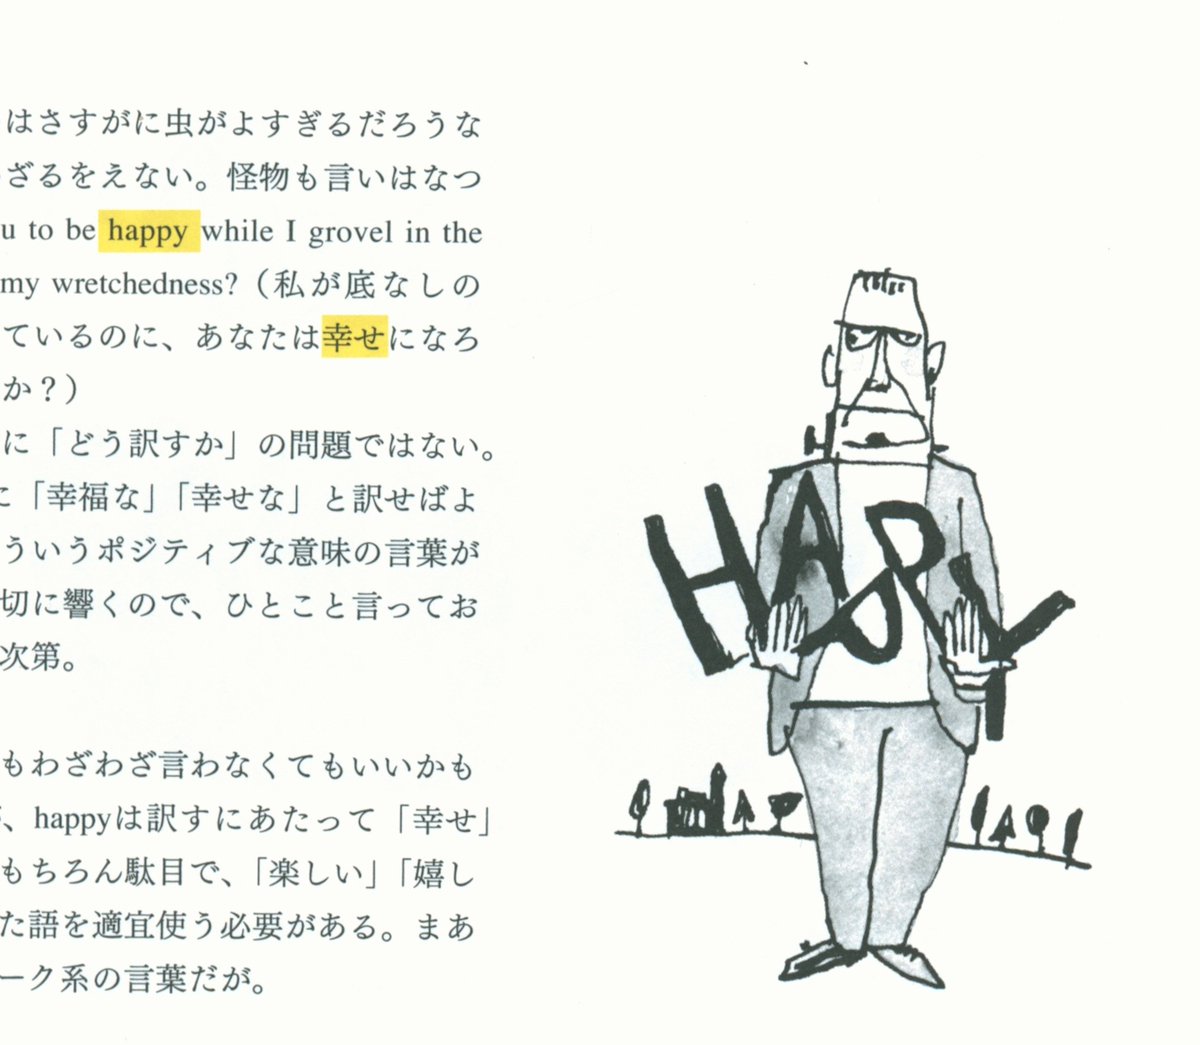 はさすがに虫がよすぎるだろうな
ざるをえない。怪物も言いはなつ
u to be happy while I grovel in the
my wretchedness?（私が底なしの
ているのに、あなたは幸せになろ
か？）
に「どう訳すか」の問題ではない。
に「幸福な」「幸せな」と訳せばよ
ういうポジティブな意味の言葉が
切に響くので、ひとこと言ってお
次第。
もわざわざ言わなくてもいいかも
、happyは訳すにあたって「幸せ」
もちろん駄目で、「楽しい」「嬉し
た語を適宜使う必要がある。まあ
ーク系の言葉だが。
HAPPY